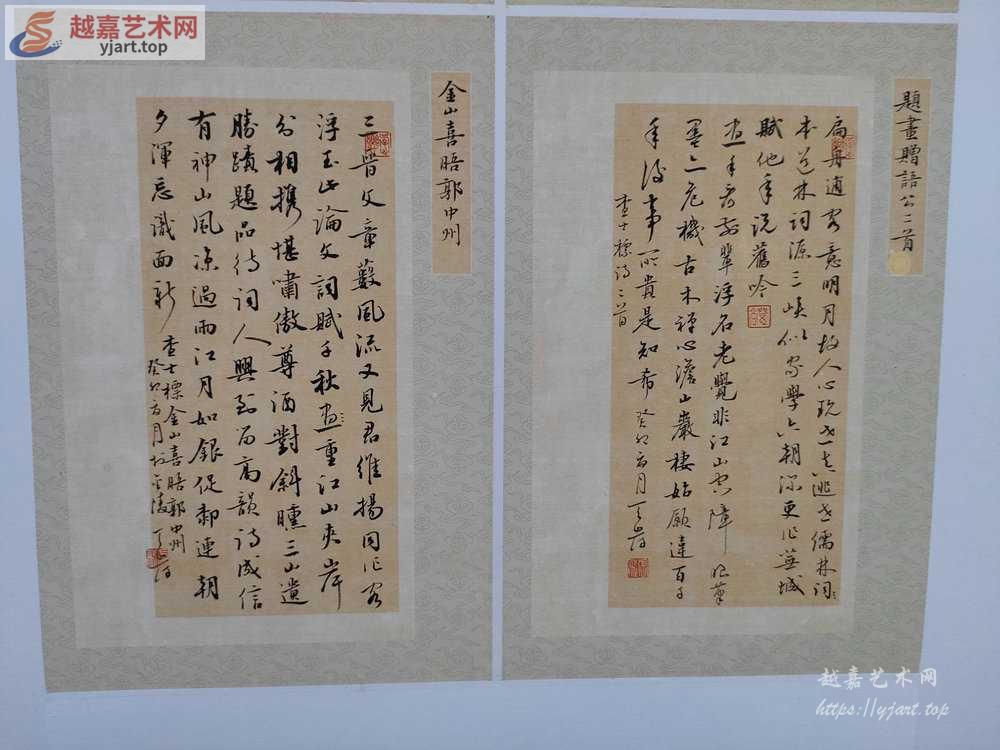 越嘉艺术网
yjart.top
題畫贈語公二首
扁舟適客意明月故人心玩世真逃世儒林詞
本道林詞源三峽似家學六朝深更作蕪城
賦他年說舊吟
畫手君前輩浮名老覺非江山空障眼筆
墨亦危機古木禪心澹山巖棲姑願違百千
年後事所貴是知希 癸卯 月
查士標詩二首
金山喜晤郭中州
三晉文章藪風流又見君維揚同作客
浮玉此論文詞賦千秋 重江山夾岸
分相攜堪嘯傲尊酒對斜曛三山遺
勝蹟題品待詞人興到留高韻詩成信
有神山風凉過雨江月如銀促 連朝
夕渾忘識面新 查士標金山喜晤郭中州
癸卯 月於金陵
越嘉艺术网
https://yjart.top